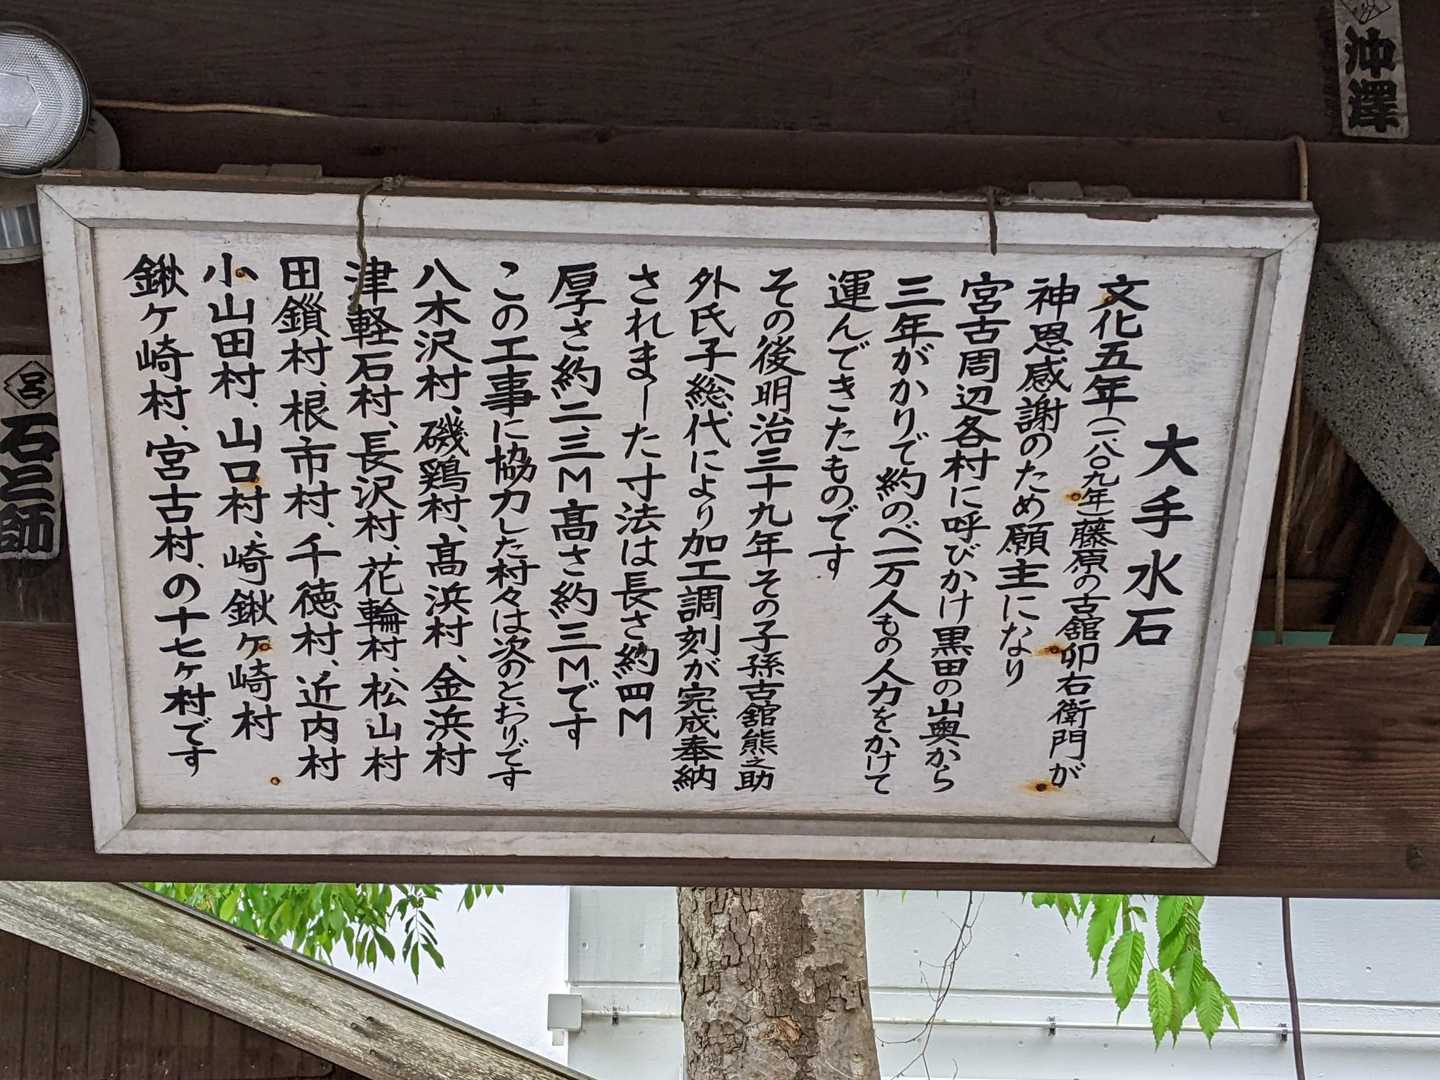 大手水石
文化五年(一八〇九年)藤原の古舘卯右衛門が
神恩感謝のため願主になり
宮古周辺各村に呼びかけ黒田の山奥から
三年がかりで約のべ一万人もの人力をかけて
運んできたものです
その後明治三十九年その子孫古舘熊之助
外氏子総代により加工調刻が完成奉納
されました寸法は長さ約四M
厚さ約二、三M高さ約三Mです
この工事に協力した村々は次のとおりです
八木沢村、磯鶏村、高浜村、金浜村
津軽石村、長沢村、花輪村、松山村
田鎖村、根市村、千徳村、近内村
小山田村、山口村、崎鍬ヶ崎村
鍬ヶ崎村、宮古村、の十七ヶ村です
沖澤
石三師